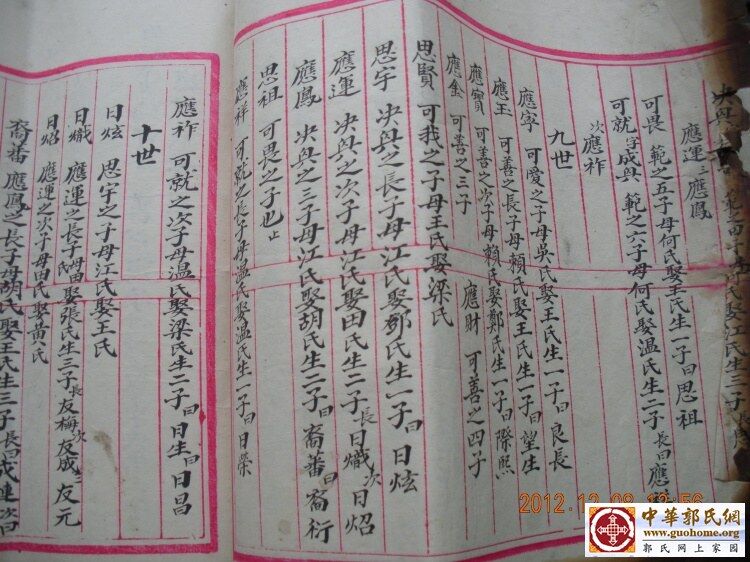 決與
之四子母何氏娶江氏生三子
應運 三應鳳
可畏 範之五子母何氏娶王氏生一子曰思祖
可就 字成與 範之六子母何氏娶温氏生二子 長曰應
次應祚
九世
應寧 可愛之子母吳氏娶王氏生一子曰良長
應玉 可善之長子母賴氏娶王氏生一子曰望生
應寶 可善之次子母賴氏娶鄭氏生一子曰際熙
應金 可善之三子 應財 可善之四子
思賢 可我之子母王氏娶梁氏
思宇 決與之長子母江氏娶鄧氏生一子曰日炫
應運 決與之次子母江氏娶田氏生二子 長曰日熾 次曰日炤
應鳳 決與之三子母江氏娶胡氏生二子曰裔蕃曰裔衍
思祖 可畏之子也止
應祥 可就之長子母温氏娶温氏生一子曰日榮
應祚 可就之次子母温氏娶梁氏生二子曰日生曰日昌
十世
日炫 思宇之子母江氏娶王氏
日熾 應運之長子母田氏娶張氏生三子 長友梅 次友成 三友元
日炤 應運之次子母田氏娶黃氏
裔蕃 應鳳之長子母胡氏娶王氏生三子 長曰成連 次曰
2012.12.08
56
中華郭氏網
www.guohome.org
郭氏网上家园